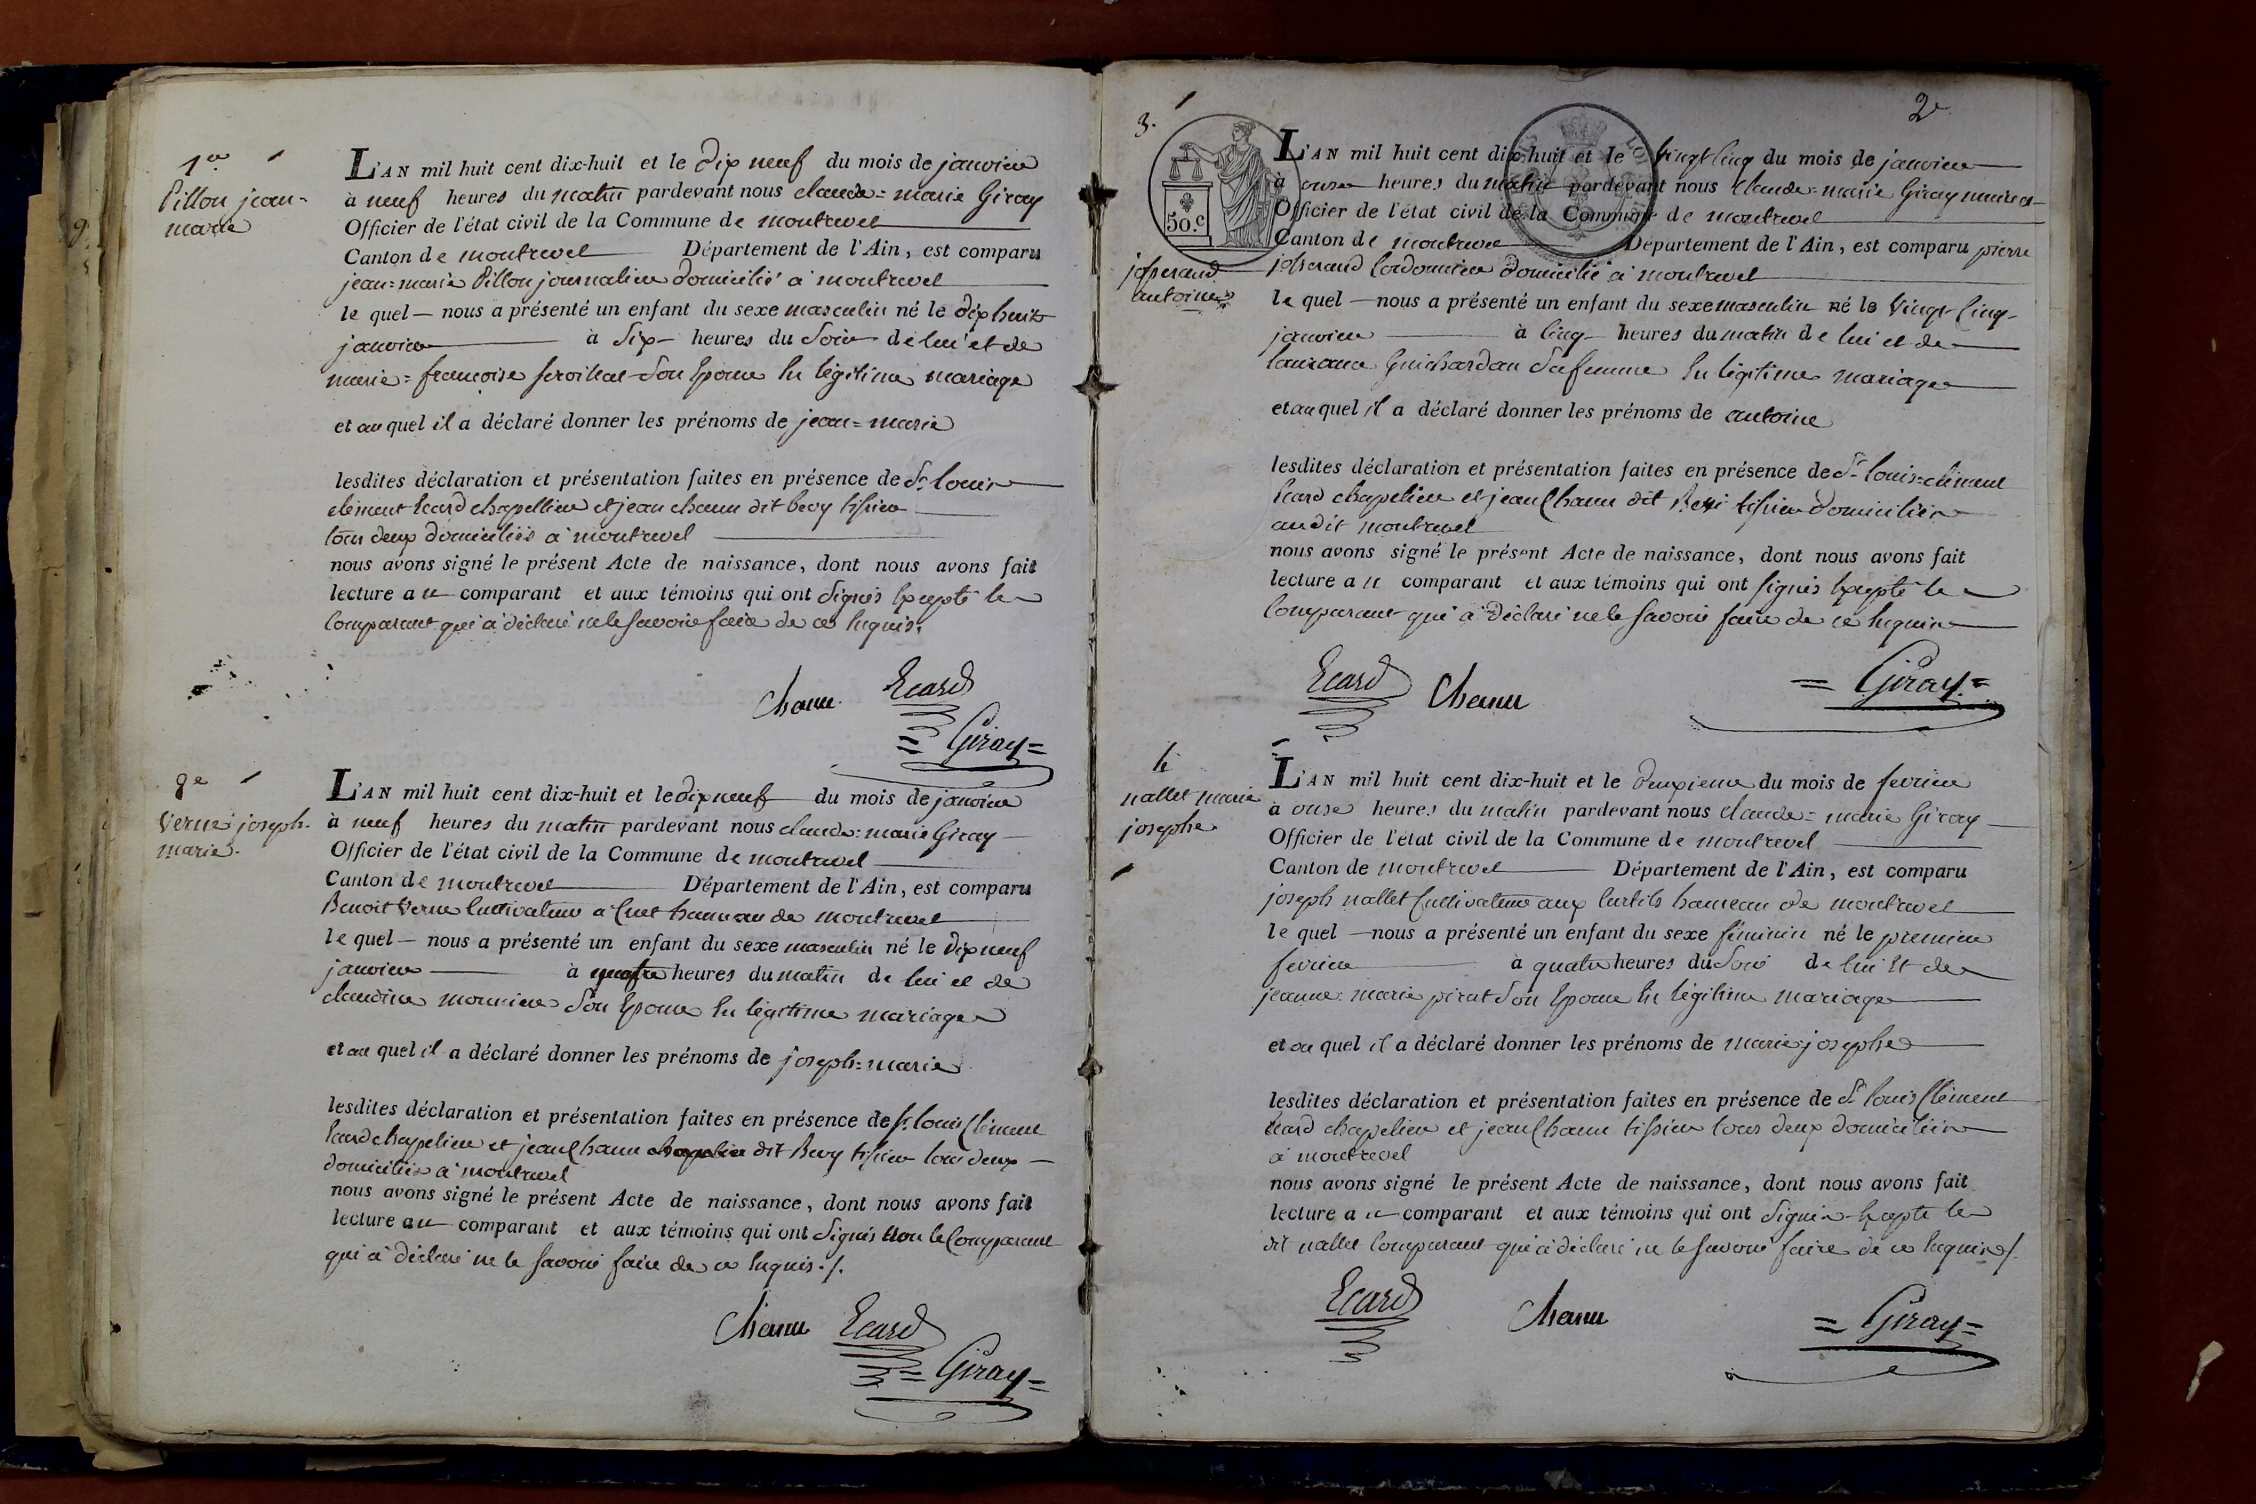 1er
Pillon jean-
marie
L'AN mil huit cent dix-huit et le dix neuf du mois de janvier
à neuf heures du matin pardevant nous claude=marie Giray
Officier de l'état civil de la Commune de montrevel
Canton de montrevel Département de l'Ain, est comparu
jean=marie Pillon journalier domicilié à montrevel
le quel — nous a présenté un enfant du sexe masculin né le dix huit
janvier à six heures du soir de lui et de
marie=francoise son Epouse En légitime mariage
et au quel il a déclaré donner les prénoms de jean=marie
lesdites déclaration et présentation faites en présence de Sr. louis
clément Ecard chapellier et jean chanu dit bevy tissier
tous deux domiciliés à montrevel
nous avons signé le présent Acte de naissance, dont nous avons fait
lecture au comparant et aux témoins qui ont signés Excepté le
Comparant qui à déclaré ne le savoir faire de ce Enquis.
chanu Ecard
= Giray =
2e
Verne joseph-
marie.
L'AN mil huit cent dix-huit et le dix neuf du mois de janvier
à neuf heures du matin pardevant nous claude=marie Giray
Officier de l'état civil de la Commune de montrevel
Canton de montrevel Département de l'Ain, est comparu
Benoit Verne Cultivateur à Cuet hameau de montrevel
le quel — nous a présenté un enfant du sexe masculin né le dix neuf
janvier à quatre heures du matin de lui et de
claudine son Epouse En légitime mariage
et au quel il a déclaré donner les prénoms de joseph=marie
lesdites déclaration et présentation faites en présence de Sr. louis Clément
Ecard chapelier et jean Chanu chapelier dit Bevy tissier tous deux
domiciliés à montrevel
nous avons signé le présent Acte de naissance, dont nous avons fait
lecture au comparant et aux témoins qui ont signés non le Comparant
qui à déclaré ne le savoir faire de ce Enquis ./.
Chanu Ecard
= Giray =
2e
3.
50.c
josserand
antoine
L'AN mil huit cent dix-huit et le vingt Cinq du mois de janvier
à onze heures du matin pardevant nous Claude=marie Giray maire et
Officier de l'état civil de la Commune de montrevel
Canton de montrevel Département de l'Ain, est comparu pierre
josserand Cordonnier domicilié à montrevel
le quel — nous a présenté un enfant du sexe masculin né le vingt Cinq
janvier à Cinq heures du matin de lui et de
laurance Guichardan sa femme En légitime mariage
et au quel il a déclaré donner les prénoms de antoine
lesdites déclaration et présentation faites en présence de Sr. louis=clément
Ecard chapelier et jean Chanu dit tissier domiciliés
audit montrevel
nous avons signé le présent Acte de naissance, dont nous avons fait
lecture au comparant et aux témoins qui ont signés Excepté le
Comparant qui à déclaré ne le savoir faire de ce Enquis
Ecard Chanu = Giray =
4
nallet marie
josephe
L'AN mil huit cent dix-huit et le deuxieme du mois de fevrier
à onze heures du matin pardevant nous claude=marie Giray
Officier de l'état civil de la Commune de montrevel
Canton de montrevel Département de l'Ain, est comparu
joseph nallet Cultivateur aux Curtils hameau de montrevel
le quel — nous a présenté un enfant du sexe féminin né le premier
fevrier à quatre heures du soir de lui Et de
jeanne=marie pirat son Epouse En légitime mariage
et au quel il a déclaré donner les prénoms de marie josephe
lesdites déclaration et présentation faites en présence de Sr. louis Clément
Ecard chapelier et jean Chanu tissier tous deux domiciliés
à montrevel
nous avons signé le présent Acte de naissance, dont nous avons fait
lecture au comparant et aux témoins qui ont signés Excepté le
dit nallet Comparant qui à déclaré ne le savoir faire de ce Enquis ./.
Ecard Chanu = Giray =